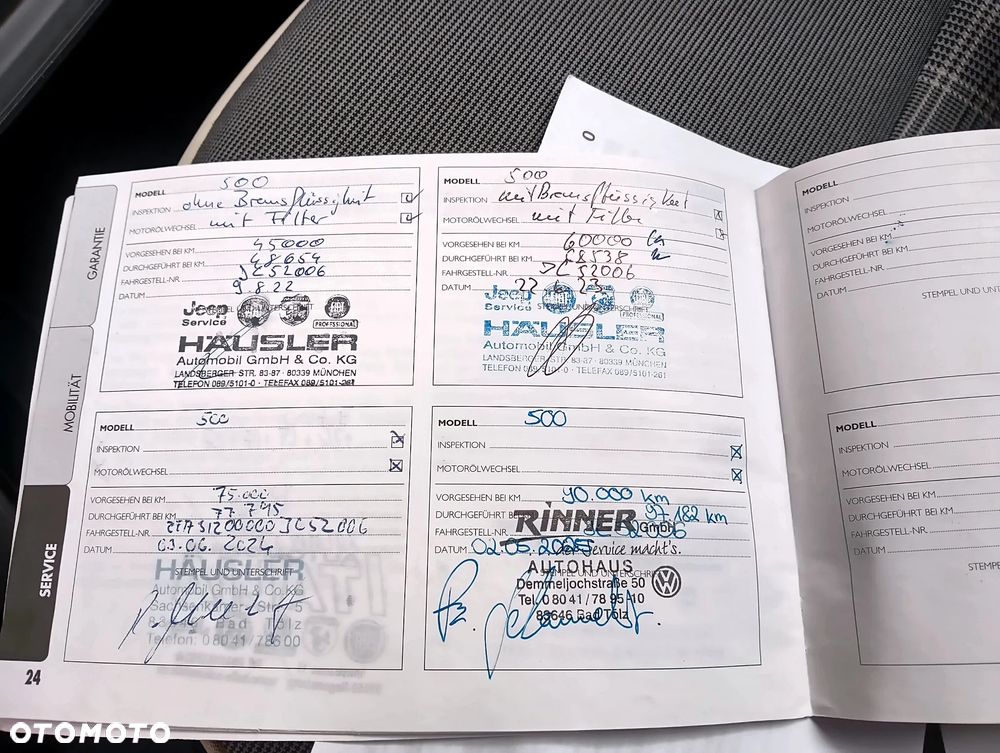 GARANTIE
MOBILITÄT
SERVICE
MODELL 500
INSPEKTION ohne Bremsflüssigkeit
MOTORÖLWECHSEL mit Filter
VORGESEHEN BEI KM 45000
DURCHGEFÜHRT BEI KM 48654
FAHRGESTELL-NR. JC52006
DATUM 9.8.22
STEMPEL UND UNTERSCHRIFT
Jeep FIAT
Service PROFESSIONAL
HÄUSLER
Automobil GmbH & Co. KG
LANDSBERGER STR. 83-87 · 80339 MÜNCHEN
TELEFON 089/5101-0 · TELEFAX 089/5101-261
MODELL 500
INSPEKTION mit Bremsflüssigkeit
MOTORÖLWECHSEL mit Filter
VORGESEHEN BEI KM 60000
DURCHGEFÜHRT BEI KM 58538
FAHRGESTELL-NR. JC52006
DATUM 22 6 23
STEMPEL UND UNTERSCHRIFT
Jeep FIAT
Service PROFESSIONAL
HÄUSLER
Automobil GmbH & Co. KG
LANDSBERGER STR. 83-87 · 80339 MÜNCHEN
TELEFON 089/5101-0 · TELEFAX 089/5101-261
MODELL 500
INSPEKTION
MOTORÖLWECHSEL
VORGESEHEN BEI KM 75.000
DURCHGEFÜHRT BEI KM 77.745
FAHRGESTELL-NR. ZFA31200000JC52006
DATUM 03.06.2024
STEMPEL UND UNTERSCHRIFT
HÄUSLER
Automobil GmbH & Co. KG
Str. 5
Bad Tölz
Telefon: 0 80 41 / 786 00
MODELL 500
INSPEKTION
MOTORÖLWECHSEL
VORGESEHEN BEI KM 90.000 km
DURCHGEFÜHRT BEI KM 97.182 km
FAHRGESTELL-NR. JC52006
RINNER GmbH
DATUM 02.05.2025
der Service macht's.
STEMPEL UND UNTERSCHRIFT
AUTOHAUS
Demmeljochstraße 50
Tel. 0 80 41 / 78 95 10
83646 Bad Tölz
MODELL
INSPEKTION
MOTORÖLWECHSEL
VORGESEHEN BEI KM
DURCHGEFÜHRT BEI KM
FAHRGESTELL-NR.
DATUM
STEMPEL UND
MODELL
INSPEKTION
MOTORÖLWECHSEL
VORGESEHEN BEI KM
DURCHGEFÜHRT BEI KM
FAHRGESTELL-NR.
DATUM
24
OTOMOTO